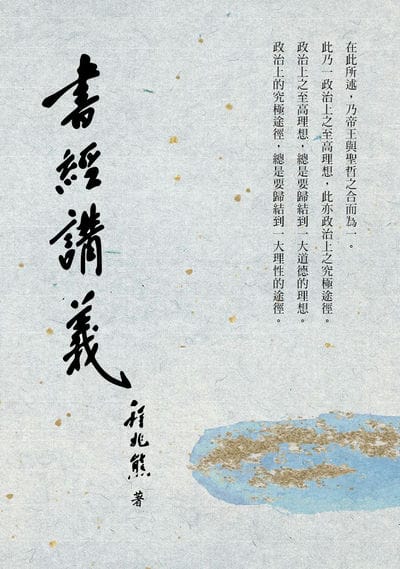 在此所述，乃帝王與聖哲之合而為一。
此乃一政治上之至高理想，此亦政治上之究極途徑。
政治上之至高理想，總是要歸結到一大道德的理想。
政治上的究極途徑，總是要歸結到一大理性的途徑。
書經講義
程兆熊 著